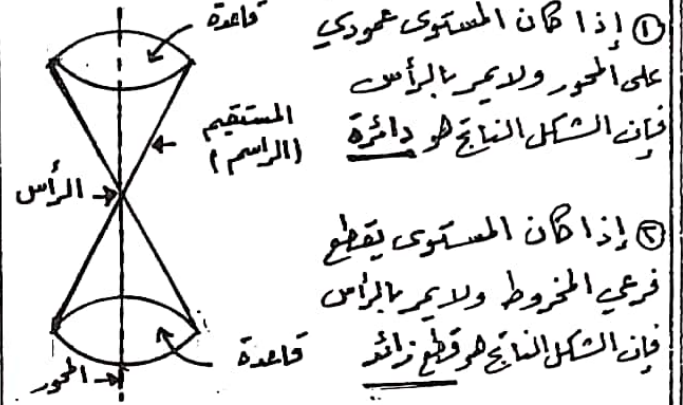 ① إذا كان المستوى عمودي
على المحور ولا يمر بالرأس
فإن الشكل الناتج هو دائرة
② إذا كان المستوى يقطع
فرعي المخروط ولا يمر بالرأس
فإن الشكل الناتج هو قطع زائد
قاعدة
المستقيم
(الراسم)
الرأس
قاعدة
المحور